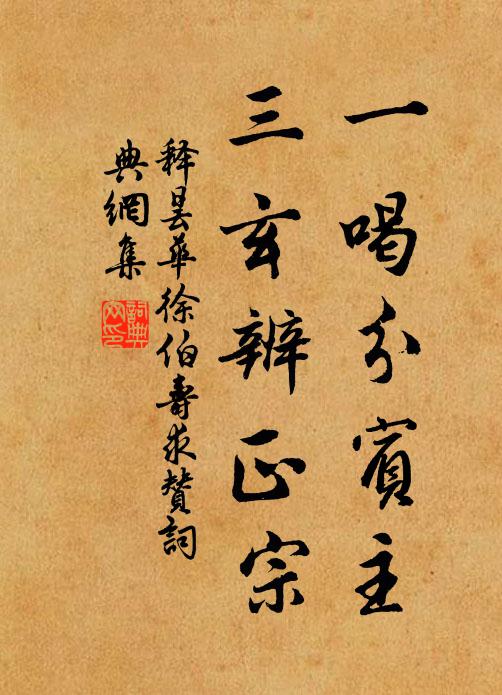 一喝分賓主
三玄辨正宗
釋曇華徐伯壽求贊詞
典網集
詞典
网印